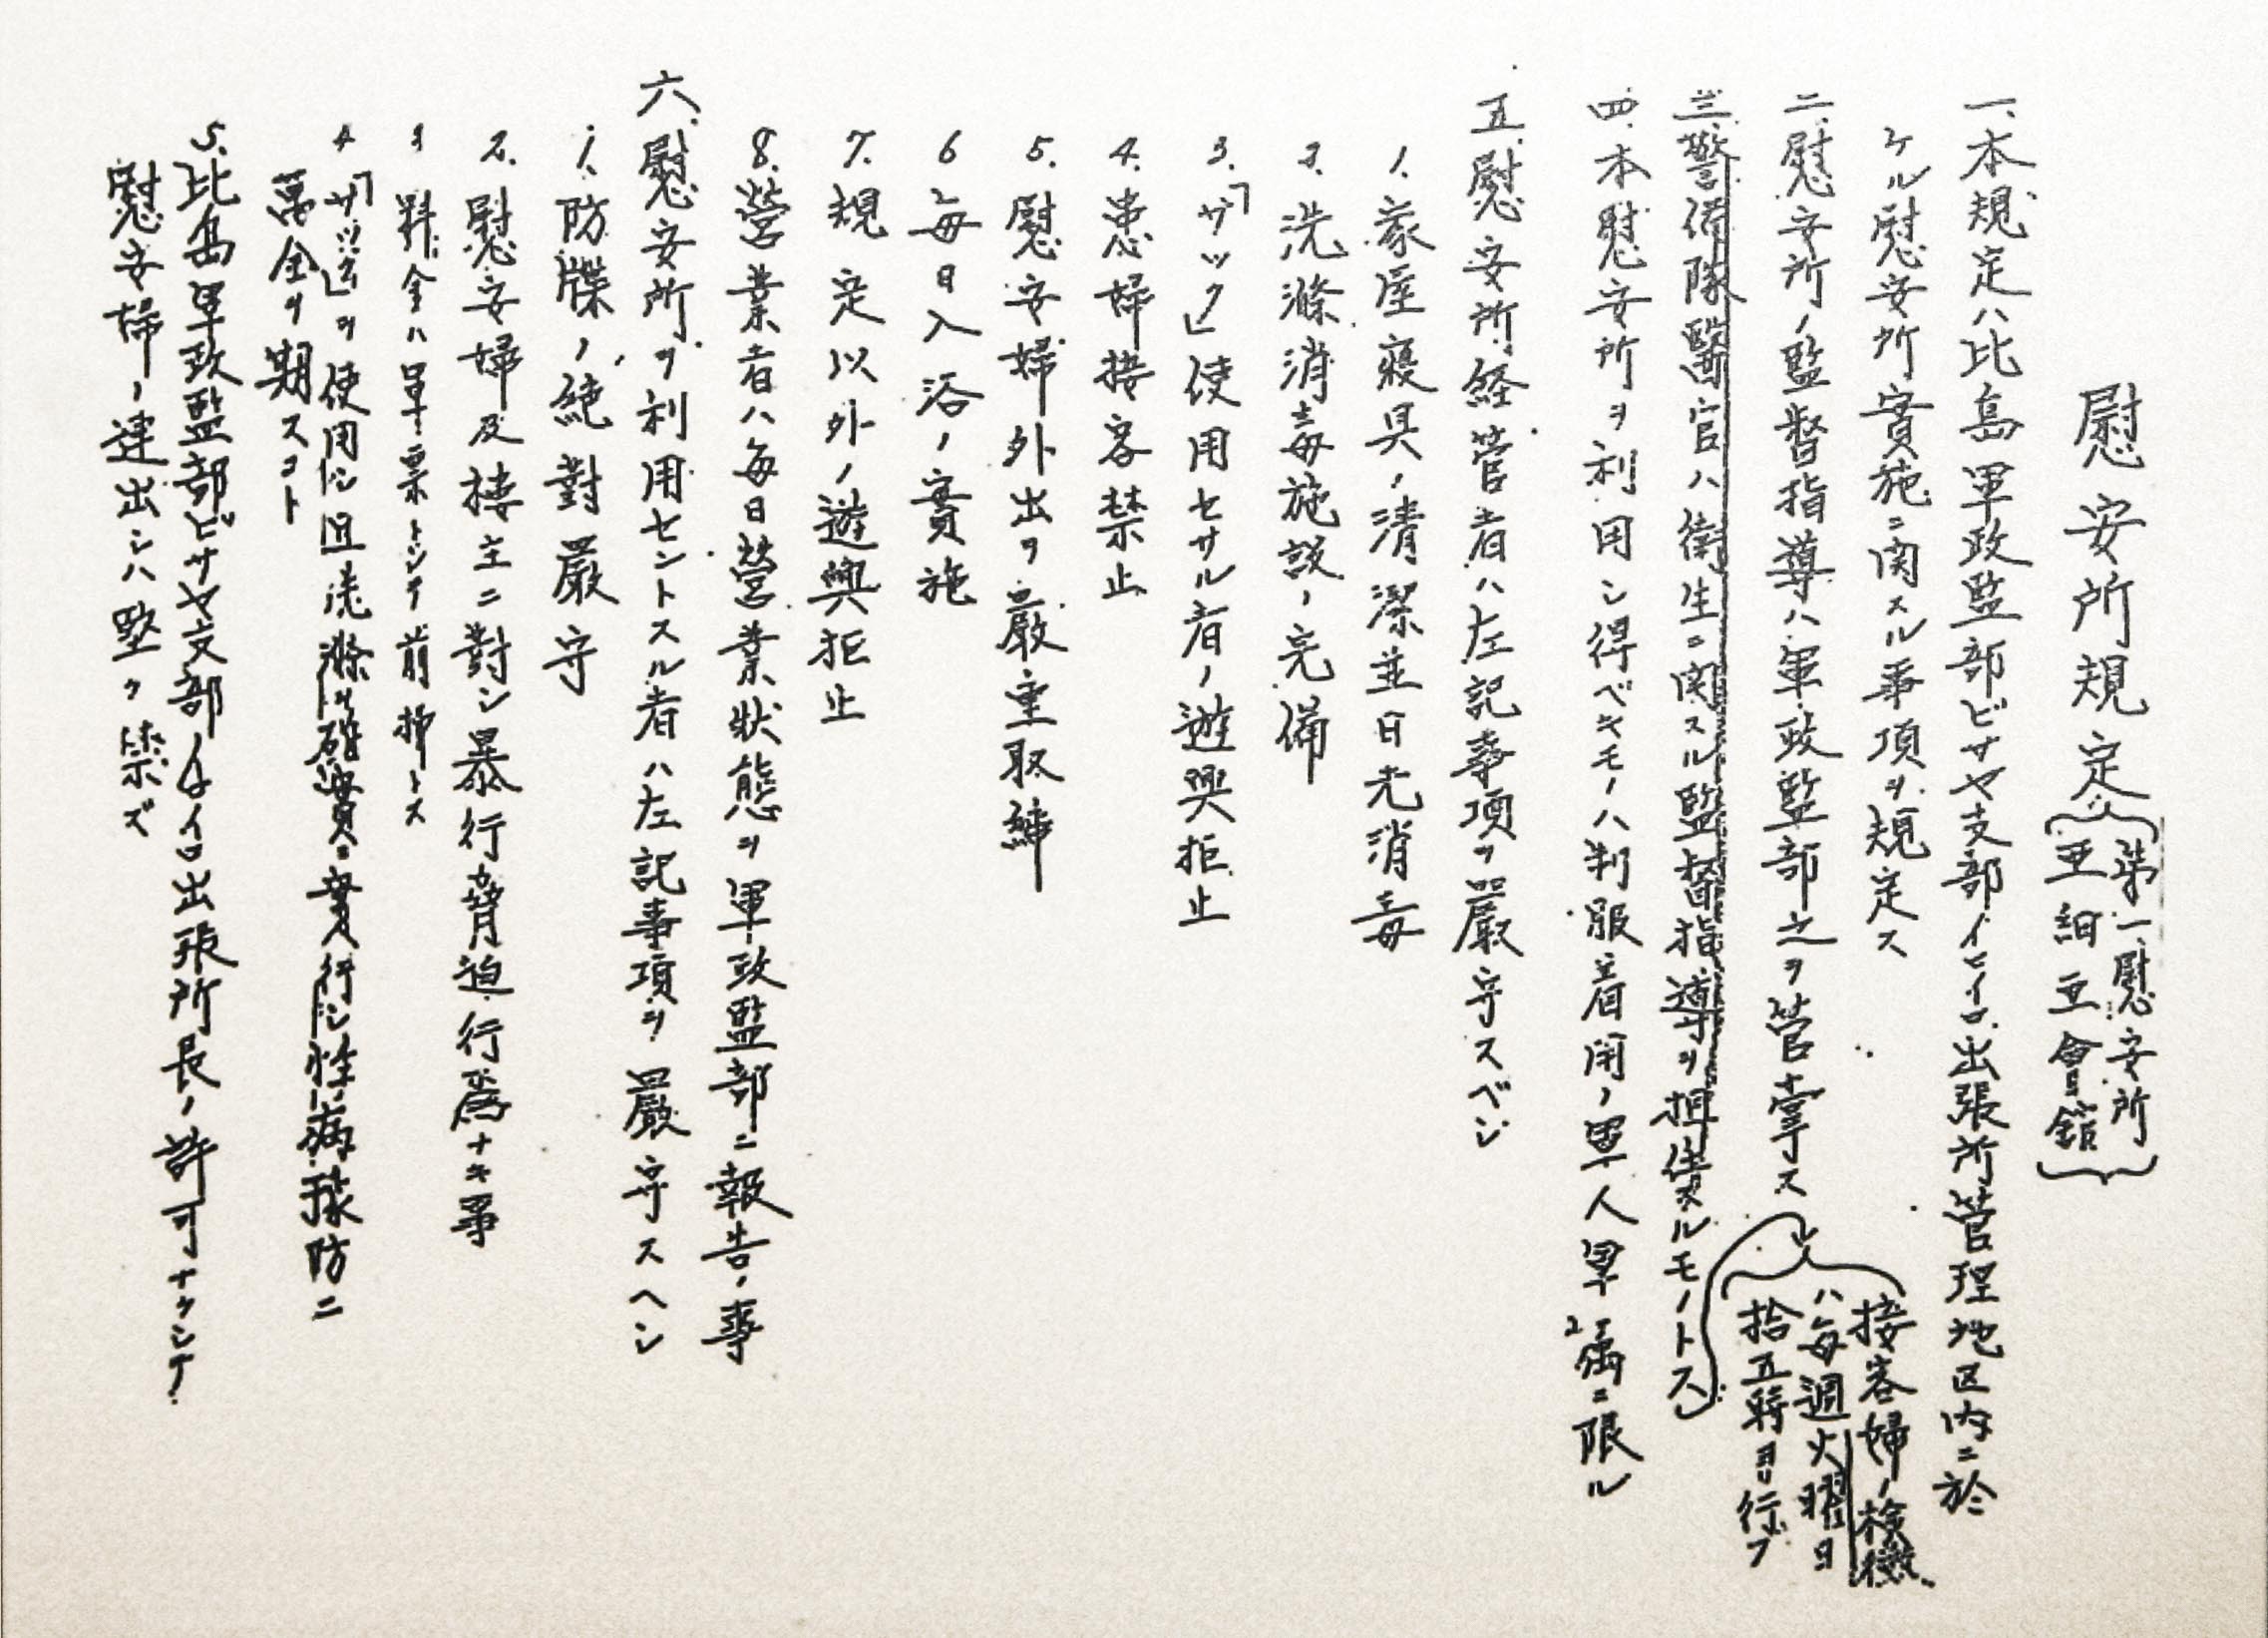 慰安所規定(第一慰安所
亜細亜會館)
一、本規定ハ比島軍政監部ビサヤ支部イロイロ出張所管理地区内ニ於
ケル慰安所實施ニ関スル事項ヲ規定ス
二、慰安所ノ監督指導ハ軍政監部之ヲ管掌ス
三、警備隊醫官ハ衛生ニ関スル監督指導ヲ担任スルモノトス
接客婦ノ検黴
ハ毎週火曜日
拾五時ヨリ行フ
四、本慰安所ヲ利用シ得ベキモノハ制服着用ノ軍人軍属ニ限ル
五、慰安所経営者ハ左記事項ヲ厳守スベシ
1. 家屋寝具ノ清潔並日光消毒
2. 洗滌消毒施設ノ完備
3. 「サック」使用セサル者ノ遊興拒止
4. 患婦接客禁止
5. 慰安婦外出ヲ厳重取締
6 毎日入浴ノ實施
7. 規定以外ノ遊興拒止
8. 營業者ハ毎日營業状態ヲ軍政監部ニ報告ノ事
六、慰安所ヲ利用セントスル者ハ左記事項ヲ厳守スヘシ
1. 防諜ノ絶對厳守
2. 慰安婦及楼主ニ對シ暴行脅迫行為ナキ事
3 料金ハ軍票トシテ前拂トス
4 「サック」ヲ使用シ且洗滌ヲ確實ニ實行シ性病予防ニ
萬全ヲ期スコト
5. 比島軍政監部ビサヤ支部イロイロ出張所長ノ許可ナクシテ
慰安婦ノ連出シハ堅ク禁ズ